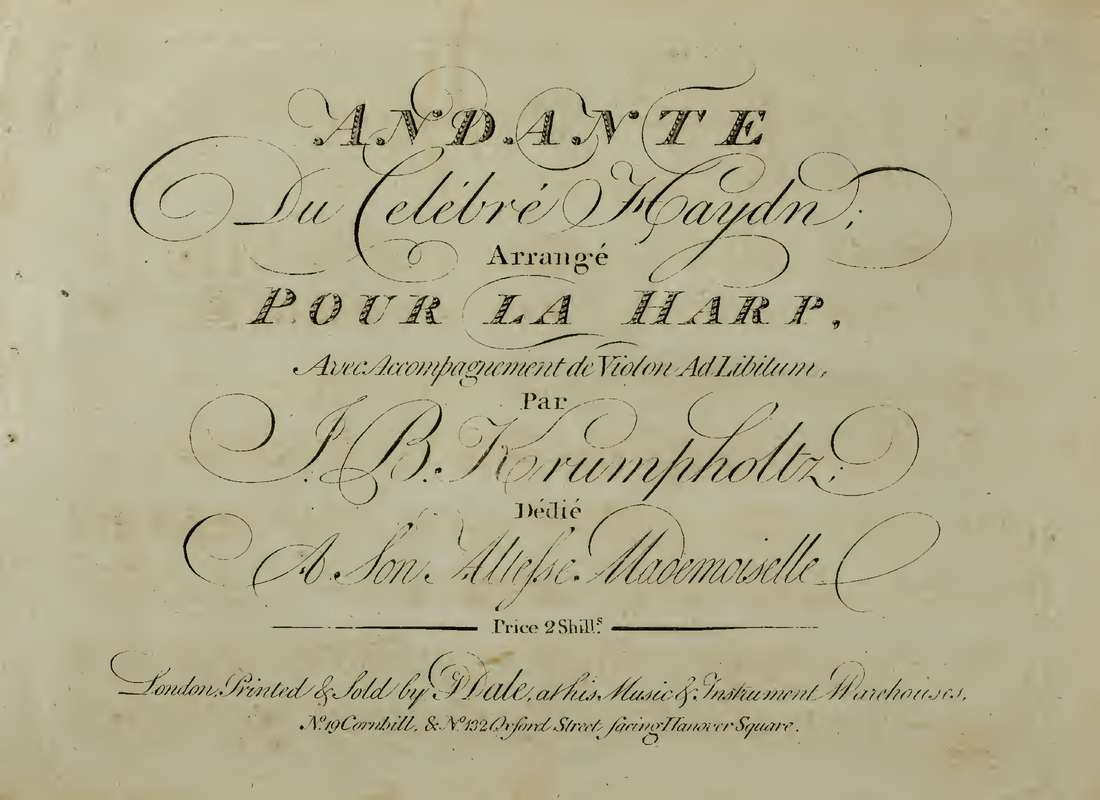 ANDANTE
Du Celébré Haydn;
Arrangé
POUR LA HARP,
Avec Accompagnement de Violon Ad Libitum,
Par
J. B. Krumpholtz;
Dédié
A Son Altesse Mademoiselle
Price 2 Shill.s
London, Printed & Sold by J Dale, at his Music & Instrument Warehouses,
No. 19 Cornhill, & No. 132 Oxford Street, facing Hanover Square.